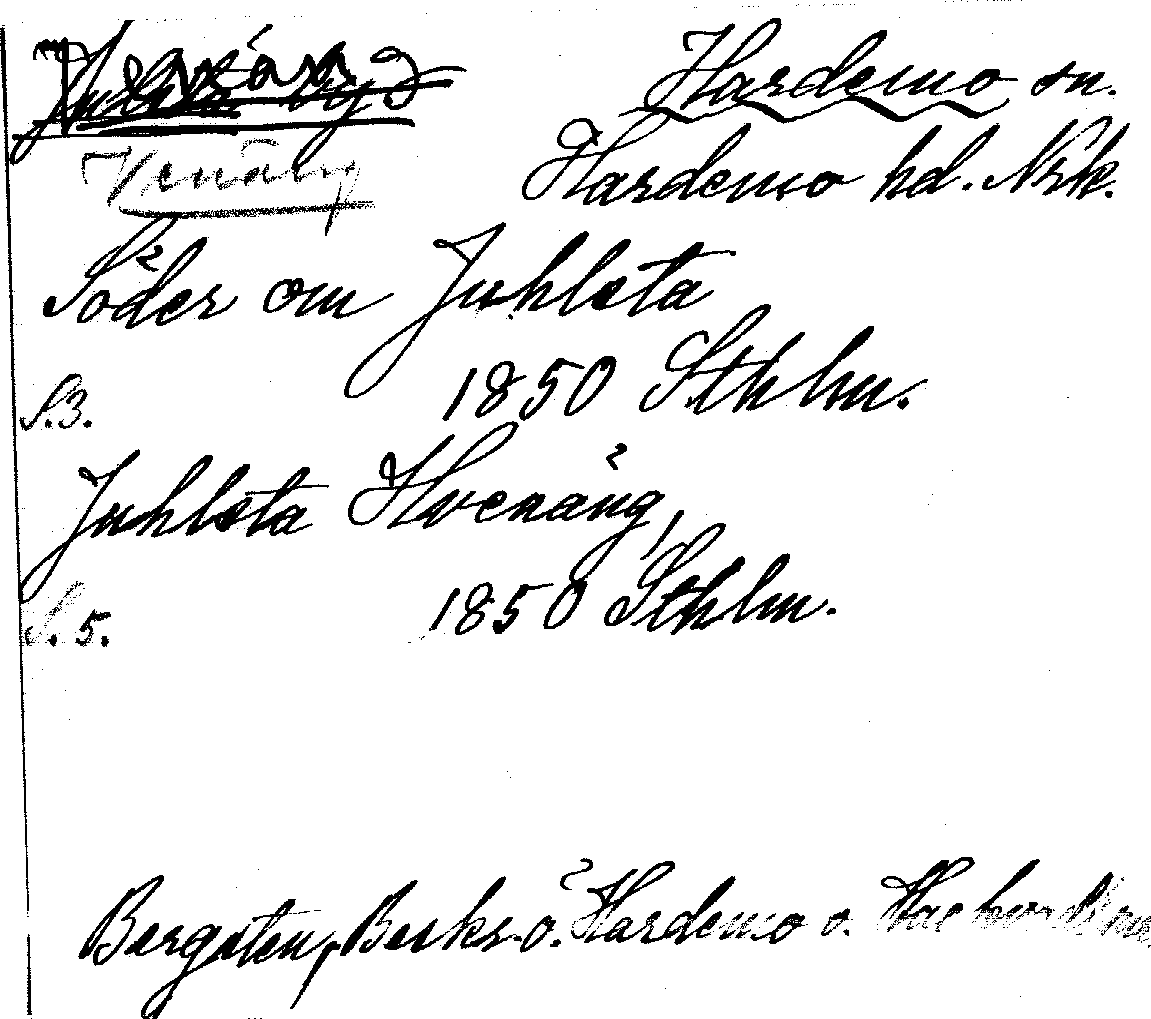 Hardemo sn.
Venäng
Hardemo hd. Nrk.
Söder om Juhlsta
S.3. 1850 Sthlm.
Juhlsta Hvenäng,
S. 5. 1850 Sthlm.
Bergsten, Beskr. ö. Hardemo o.